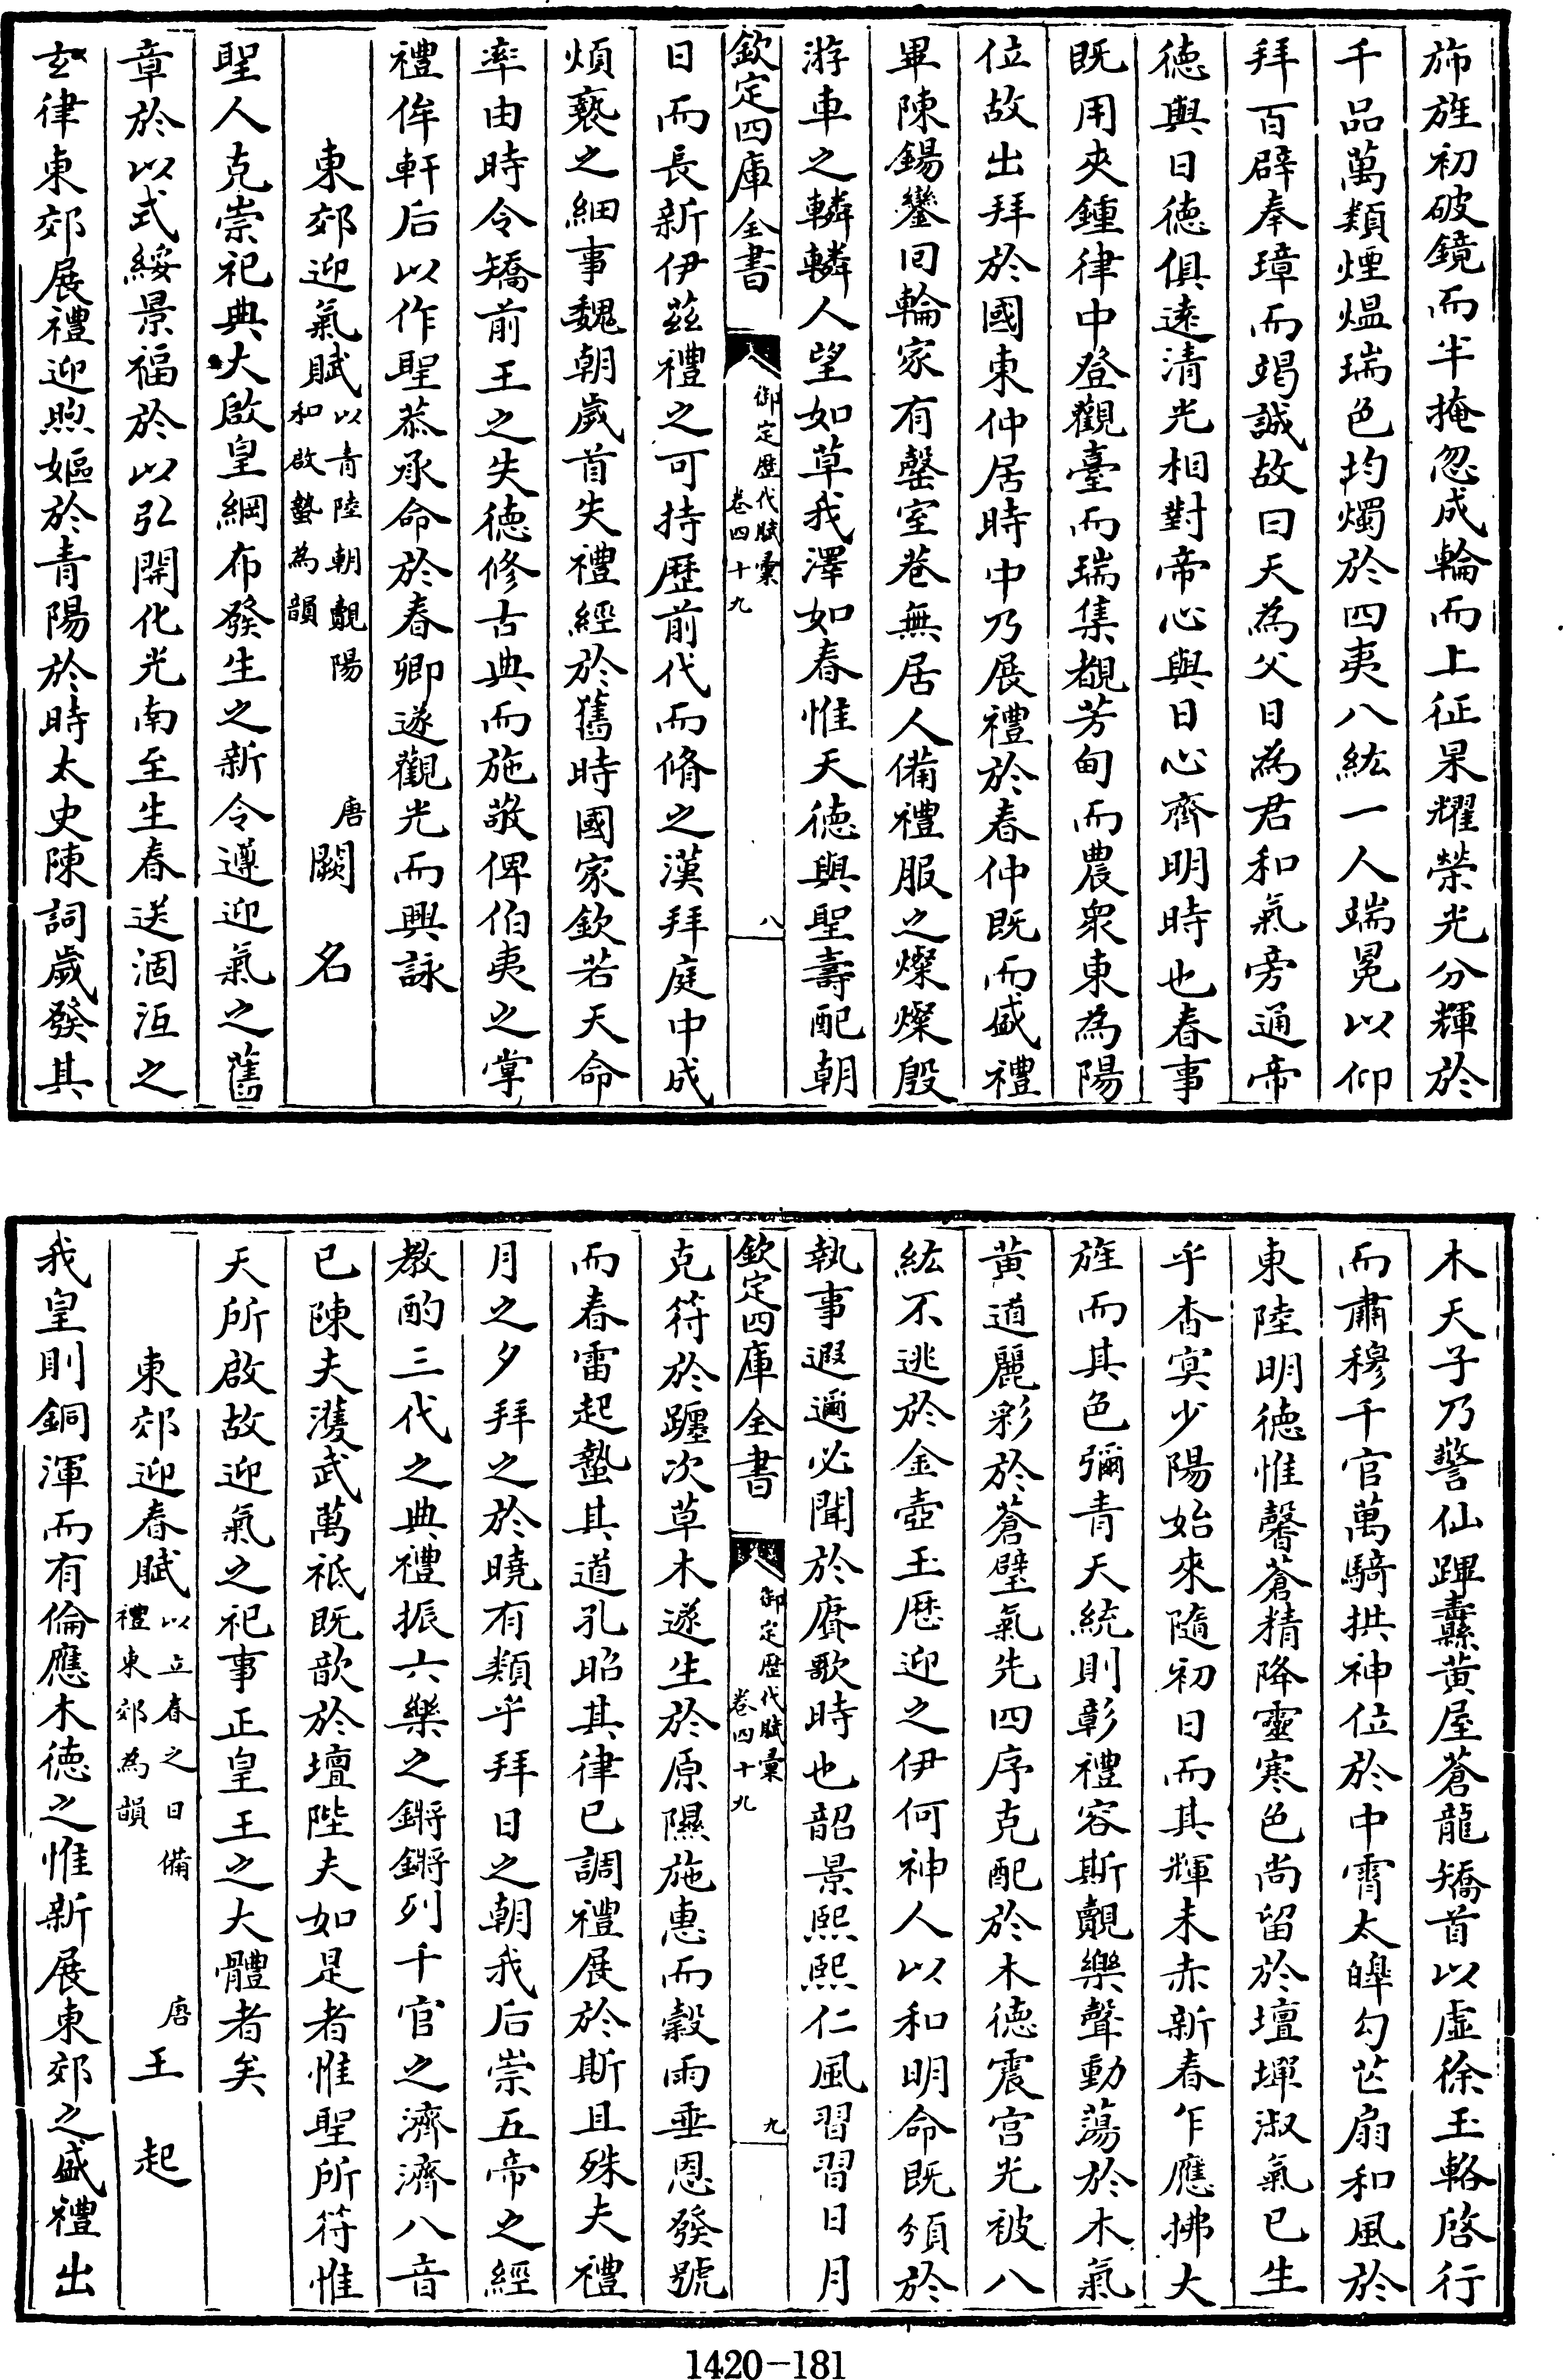 斾旌初破鏡而半掩忽成輪而上征杲耀榮光分輝於
千品萬類煙熅瑞色均燭於四夷八紘一人端冕以仰
拜百辟奉璋而竭誠故曰天為父日為君和氣旁通帝
徳與日徳俱逺清光相對帝心與日心齊明時也春事
既用夾鍾律中登觀臺而瑞集覩芳甸而農衆東為陽
位故出拜於國東仲居時中乃展禮於春仲既而盛禮
畢陳鍚鑾囘輪家有罄室巷無居人備禮服之燦燦殷
游車之轔轔人望如草我澤如春惟天徳與聖壽配朝
欽定四庫全書
御定歴代賦彙
卷四十九
八
日而長新伊茲禮之可持歴前代而脩之漢拜庭中成
煩䙝之細事魏朝嵗首失禮經於舊時國家欽若天命
率由時令矯前王之失徳修古典而施敬俾伯夷之掌
禮侔軒后以作聖恭承命於春卿遂觀光而興詠
東郊迎氣賦
以青陸朝覿陽
和啟蟄為韻
唐闕名
聖人克崇祀典大啟皇綱布發生之新令遵迎氣之舊
章於以式綏景福於以弘開化光南至生春送涸沍之
玄律東郊展禮迎煦嫗於青陽於時太史陳詞嵗發其
木天子乃警仙蹕纛黄屋蒼龍矯首以虛徐玉輅啓行
而肅穆千官萬騎拱神位於中霄太皥勾芒扇和風於
東陸明徳惟馨蒼精降靈寒色尚留於壇墠淑氣已生
乎杳㝠少陽始來隨初日而其輝未赤新春乍應拂大
旌而其色彌青天統則彰禮容斯覿樂聲動蕩於木氣
黄道麗彩於蒼璧氣先四序克配於木徳震宫光被八
紘不逃於金壺玉厯迎之伊何神人以和明命既頒於
執事遐邇必聞於賡歌時也韶景熙熙仁風習習日月
欽定四庫全書
御定歴代賦彙
卷四十九
九
克符於躔次草木遂生於原隰施惠而穀雨垂恩發號
而春雷起蟄其道孔昭其律已調禮展於斯且殊夫禮
月之夕拜之於曉有類乎拜日之朝我后崇五帝之經
教酌三代之典禮振六樂之鏘鏘列千官之濟濟八音
已陳夫濩武萬祇既歆於壇陛夫如是者惟聖所符惟
天所啟故迎氣之祀事正皇王之大體者矣
東郊迎春賦
以立春之日備
禮東郊為韻
唐王起
我皇則銅渾而有倫應木徳之惟新展東郊之盛禮出
1420-181